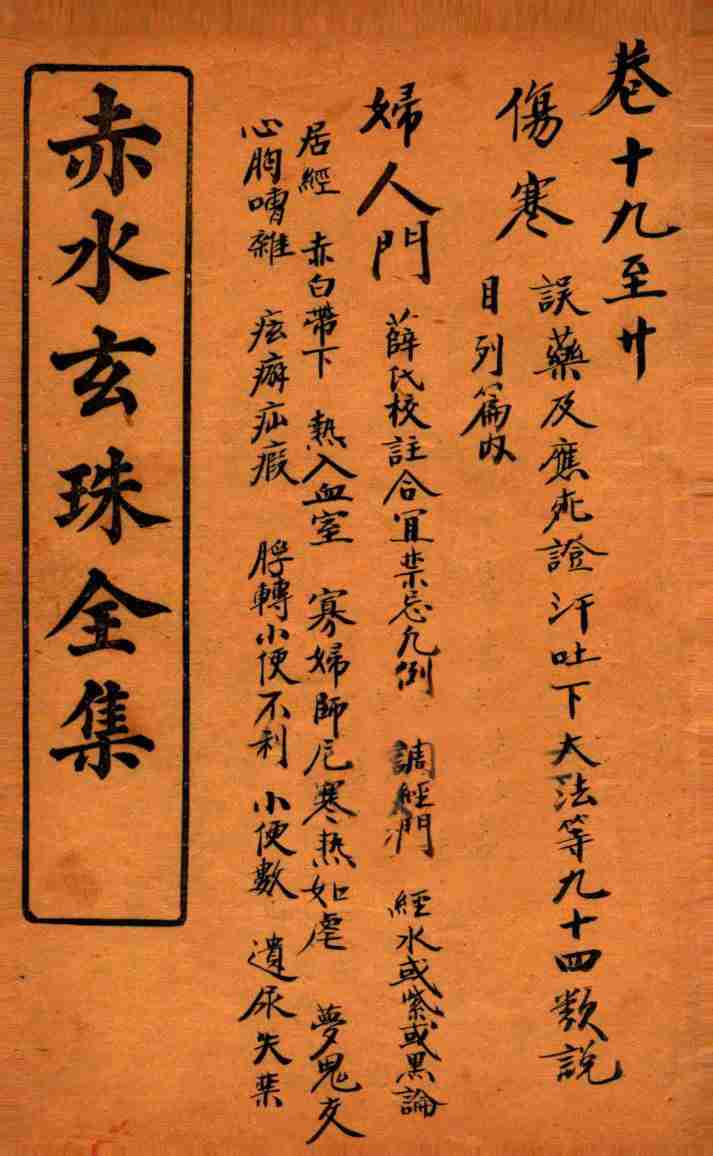 卷十九至廿
傷寒 誤藥及應死證汗吐下大法等九十四類說
目列篇内
婦人門 薛氏校註合宜禁忌凡例 調經門 經水或紫或黑論
居經 赤白帶下 熱入血室 寡婦師尼寒熱如虐 夢鬼交
心胸嘈雜 痃癖疝瘕 脬轉小便不利 小便數 遺尿失禁
赤水玄珠全集